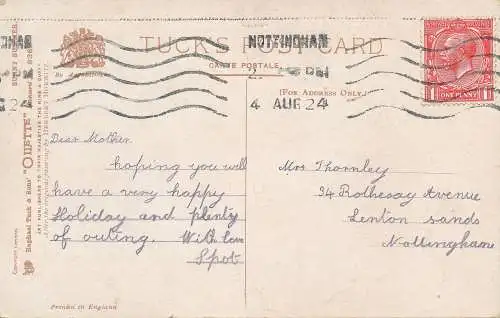 TUCK'S POST CARD
CARTE POSTALE
[FOR ADDRESS ONLY.]
NOTTINGHAM
4 AUG 24
ONE PENNY
Dear Mother.
hoping you will
have a very happy
Holiday and plenty
of outing. With love
Spot
Mrs Thornley
34 Rothesay Avenue
Lenton sands
Nottingham
Printed in England
Raphael Tuck & Sons' "OILETTE"
ART PUBLISHERS TO THEIR MAJESTIES THE KING & QUEEN